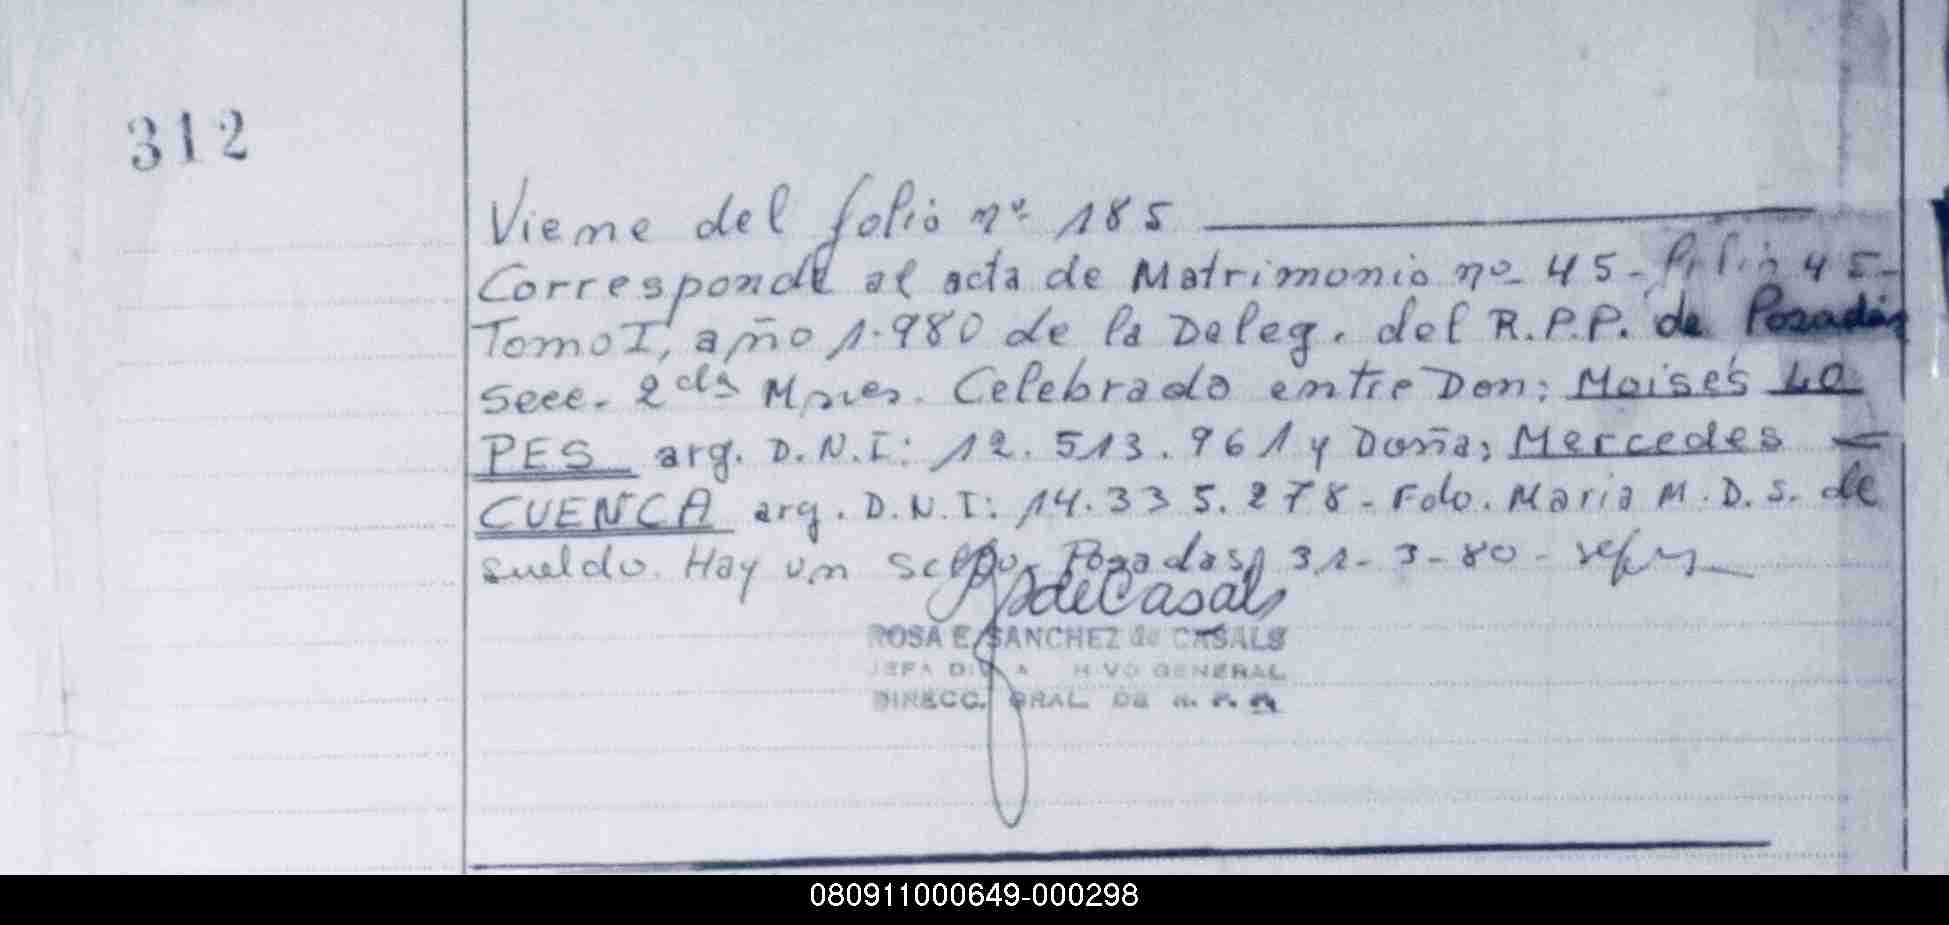 312
Viene del folio nº 185
Corresponde al acta de Matrimonio nº 45 - folio 45 -
Tomo I, año 1.980 de la Deleg. del R.P.P. de Posadas
Secc. 2da Mnes. Celebrado entre Don: Moisés LO
PES arg. D.N.I: 12.513.961 y Doña: Mercedes
CUENCA arg. D.N.I: 14.335.278 - Fdo. Maria M. D. S. de
sueldo. Hay un sello. Posadas, 31-3-80 -
de Casals
ROSA E. SANCHEZ de CASALS
JEFA DIV. A H VO GENERAL
DIRECC. GRAL DE
080911000649-000298